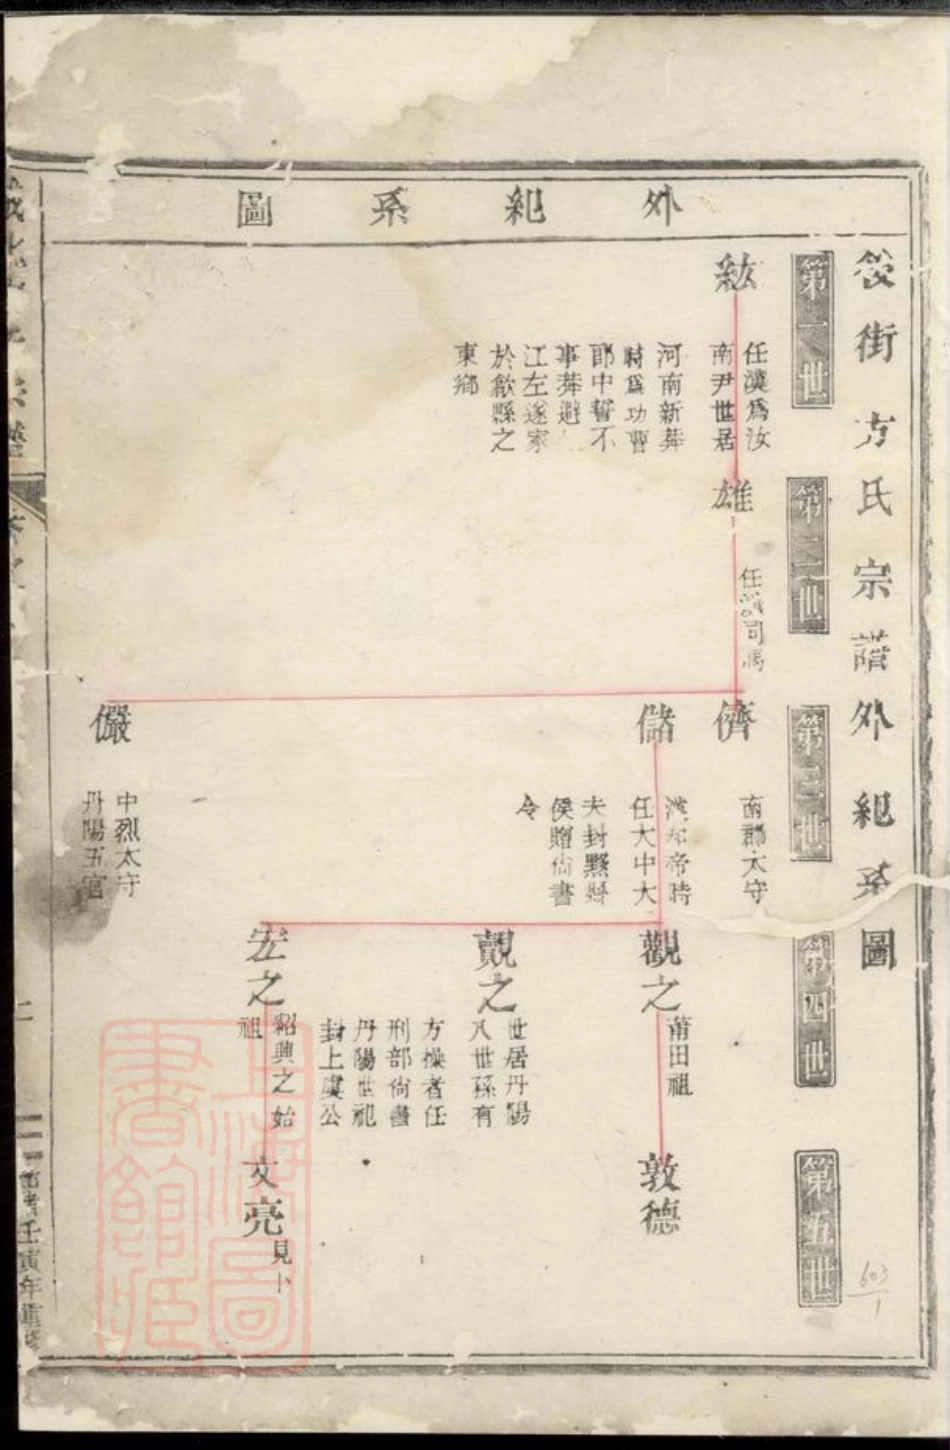 後街方氏宗譜外紀系圖
外紀系圖
第一世
紘
任漢爲汝
南尹世居
河南新莽
時爲功曹
郎中誓不
事莽避
江左遂家
於歙縣之
東鄉
第二世
雄
任 司馬
第三世
儕
南郡太守
儲
漢和帝時
任大中大
夫封黟縣
侯贈尙書
令
儼
中烈太守
丹陽五官
第四世
觀之
莆田祖
覿之
世居丹陽
八世孫有
方操者任
刑部尙書
丹陽世祀
封上虞公
宏之
紹興之始
祖
第五世
敦德
文亮
見卜
壬寅年重修
上海圖書館藏
603/1